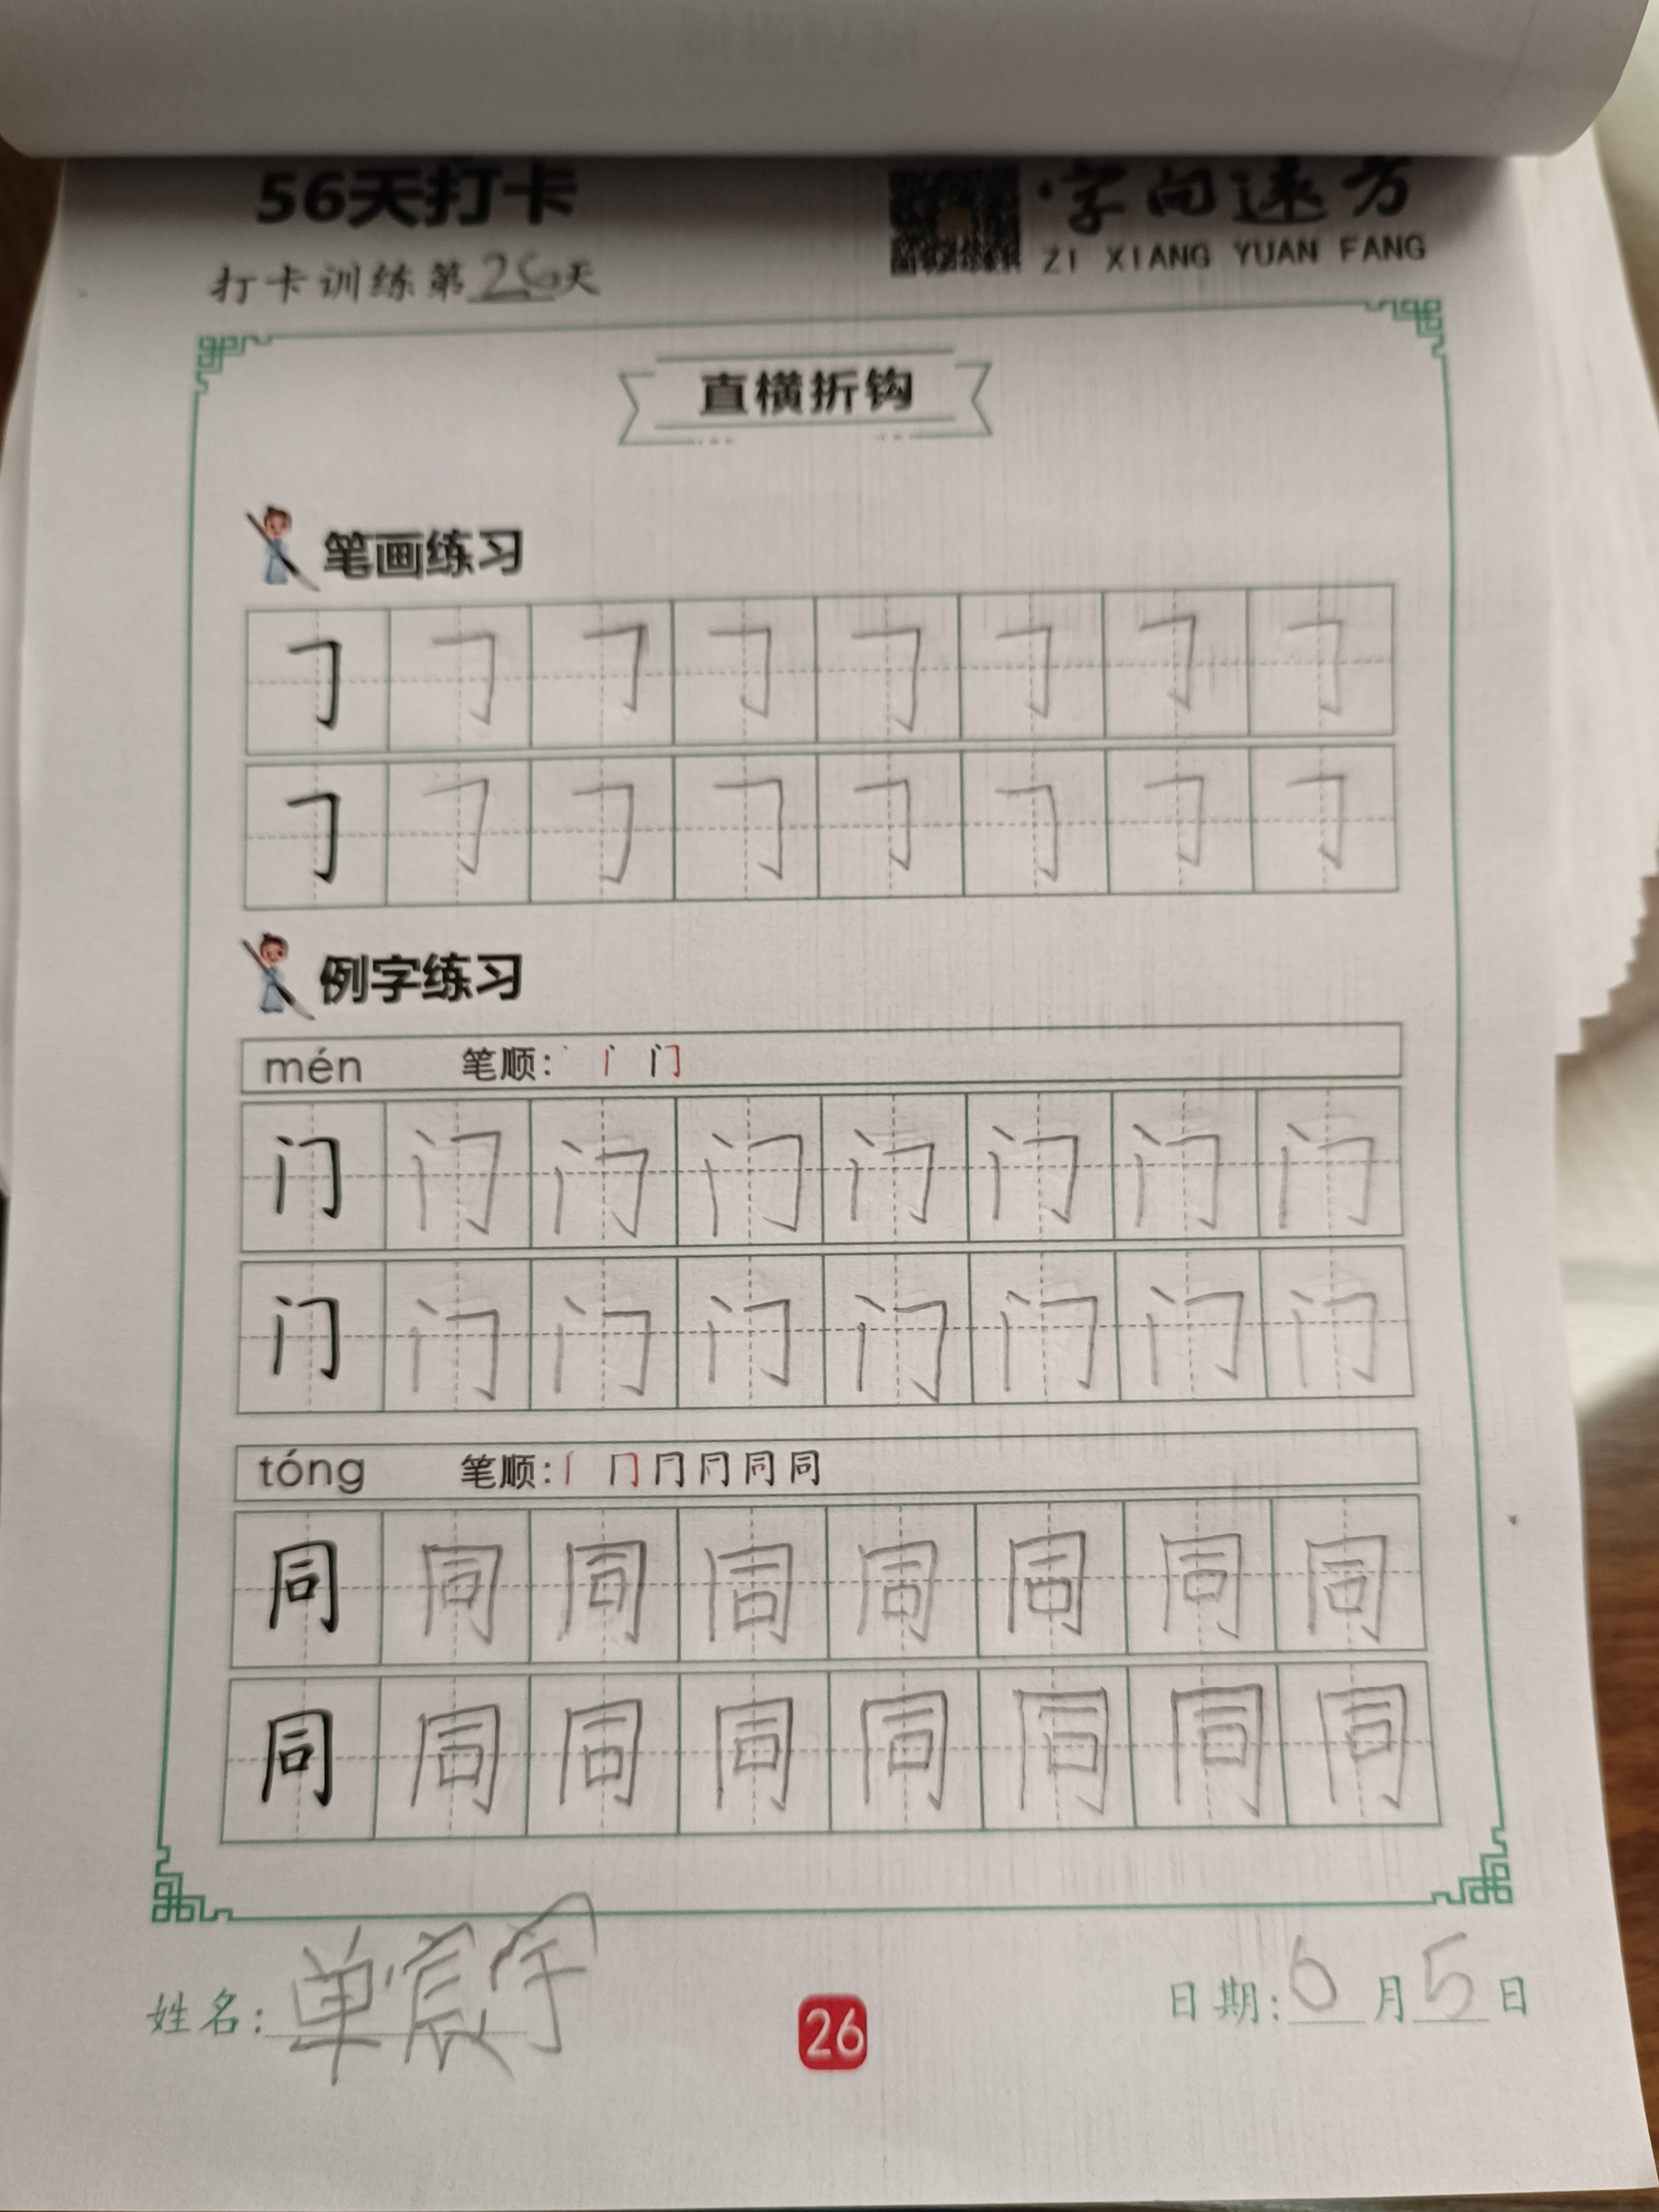 56天打卡
字向远方
ZI XIANG YUAN FANG
打卡训练第26天
直横折钩
笔画练习
𠃌 𠃌 𠃌 𠃌 𠃌 𠃌 𠃌 𠃌
𠃌 𠃌 𠃌 𠃌 𠃌 𠃌 𠃌 𠃌
例字练习
mén 笔顺: 丶 丨 门
门 门 门 门 门 门 门 门
门 门 门 门 门 门 门 门
tóng 笔顺: 丨 冂 同 同
同 同 同 同 同 同 同 同
同 同 同 同 同 同 同 同
姓名: 单宸宇
26
日期: 6月5日